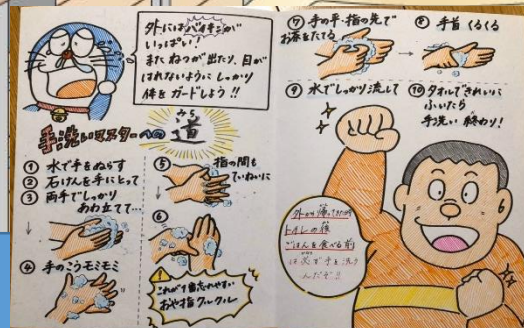 外にはバイキンが
いっぱい!
またねつが出たり、目が
はれないようにしっかり
体をガードしよう!!
手洗いマスターへの
道
みち
① 水で手をぬらす
② 石けんを手にとって
③ 両手でしっかり
あわ立てて…
④ 手のこうモミモミ
⑤ 指の間も
ていねいに
⑥
これが1番忘れやすい
おや指クルクル
⑦ 手の平・指の先で
お茶をたてる
⑧ 手首くるくる
⑨ 水でしっかり流して
⑩ タオルできれいに
ふいたら
手洗い終わり!
外から帰ってきた時
トイレの後
ごはんを食べる前
は必ず手を洗う
んだぞ!!